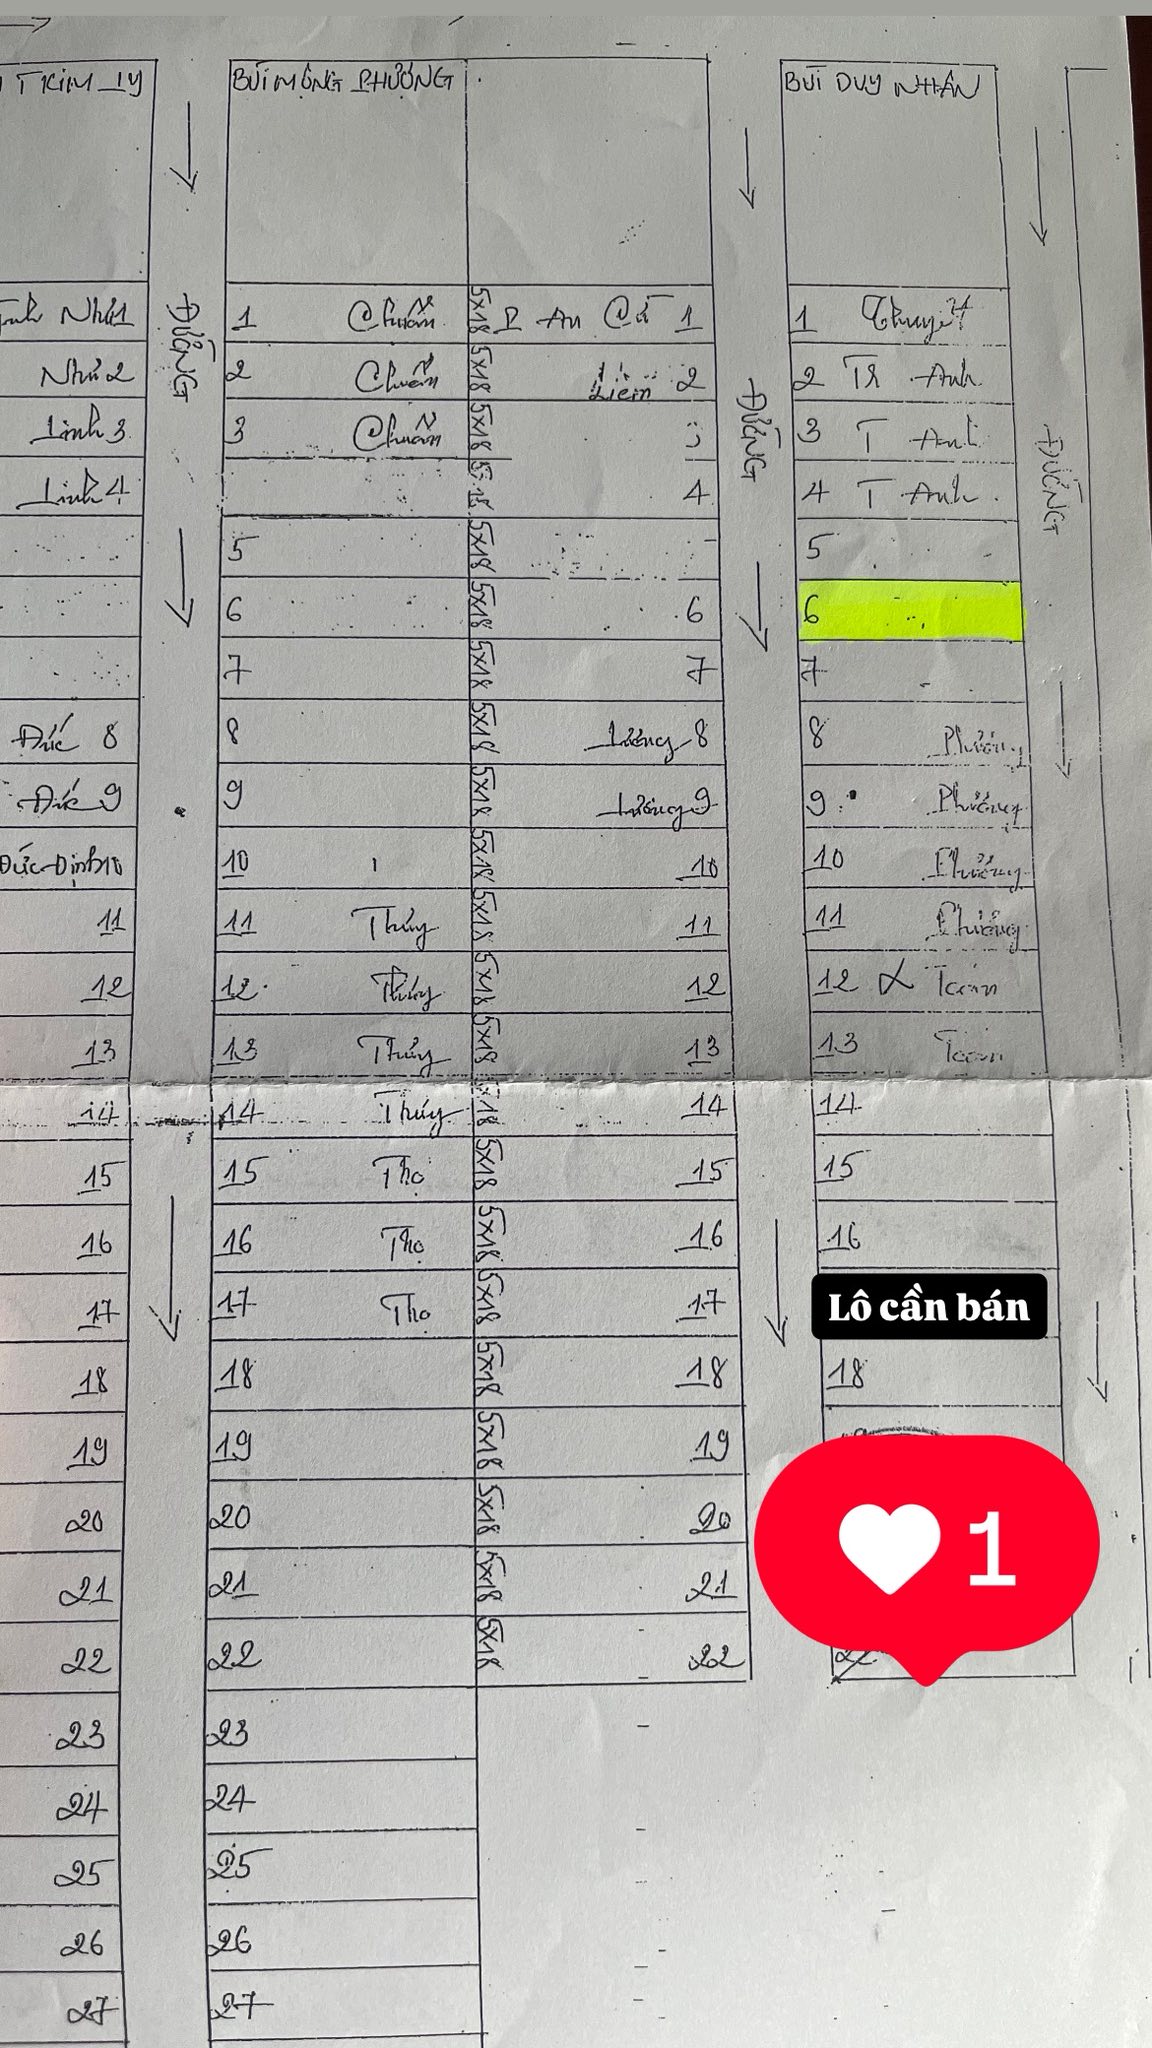 T KIM LY
BÙI MỘNG PHƯỢNG
BÙI DUY NHÂN
ĐƯỜNG
ĐƯỜNG
ĐƯỜNG
Như 1 1 Chuẩn 5x18 An 1 1 Thuyết
Như 2 2 Chuẩn 5x18 Liêm 2 2 Tr Anh
Linh 3 3 Chuẩn 5x18 3 T Anh
Linh 4 5x18 4 4 T Anh
5 5x18 5
6 5x18 6 6
7 5x18 7 7
Đức 8 8 5x18 Lương 8 8 Phượng
Đức 9 9 5x18 Lương 9 9 Phượng
Đức Định 10 10 5x18 10 10 Phượng
11 11 Thủy 5x18 11 11 Phượng
12 12 Thủy 5x18 12 12 Toán
13 13 Thủy 5x18 13 13 Toán
14 14 Thủy 5x18 14 14
15 15 Thọ 5x18 15 15
16 16 Thọ 5x18 16 16
17 17 Thọ 5x18 17 Lô cần bán
18 18 5x18 18 18
19 19 5x18 19
20 20 5x18 20
21 21 5x18 21
22 22 5x18 22 22
23 23
24 24
25 25
26 26
27 27
1